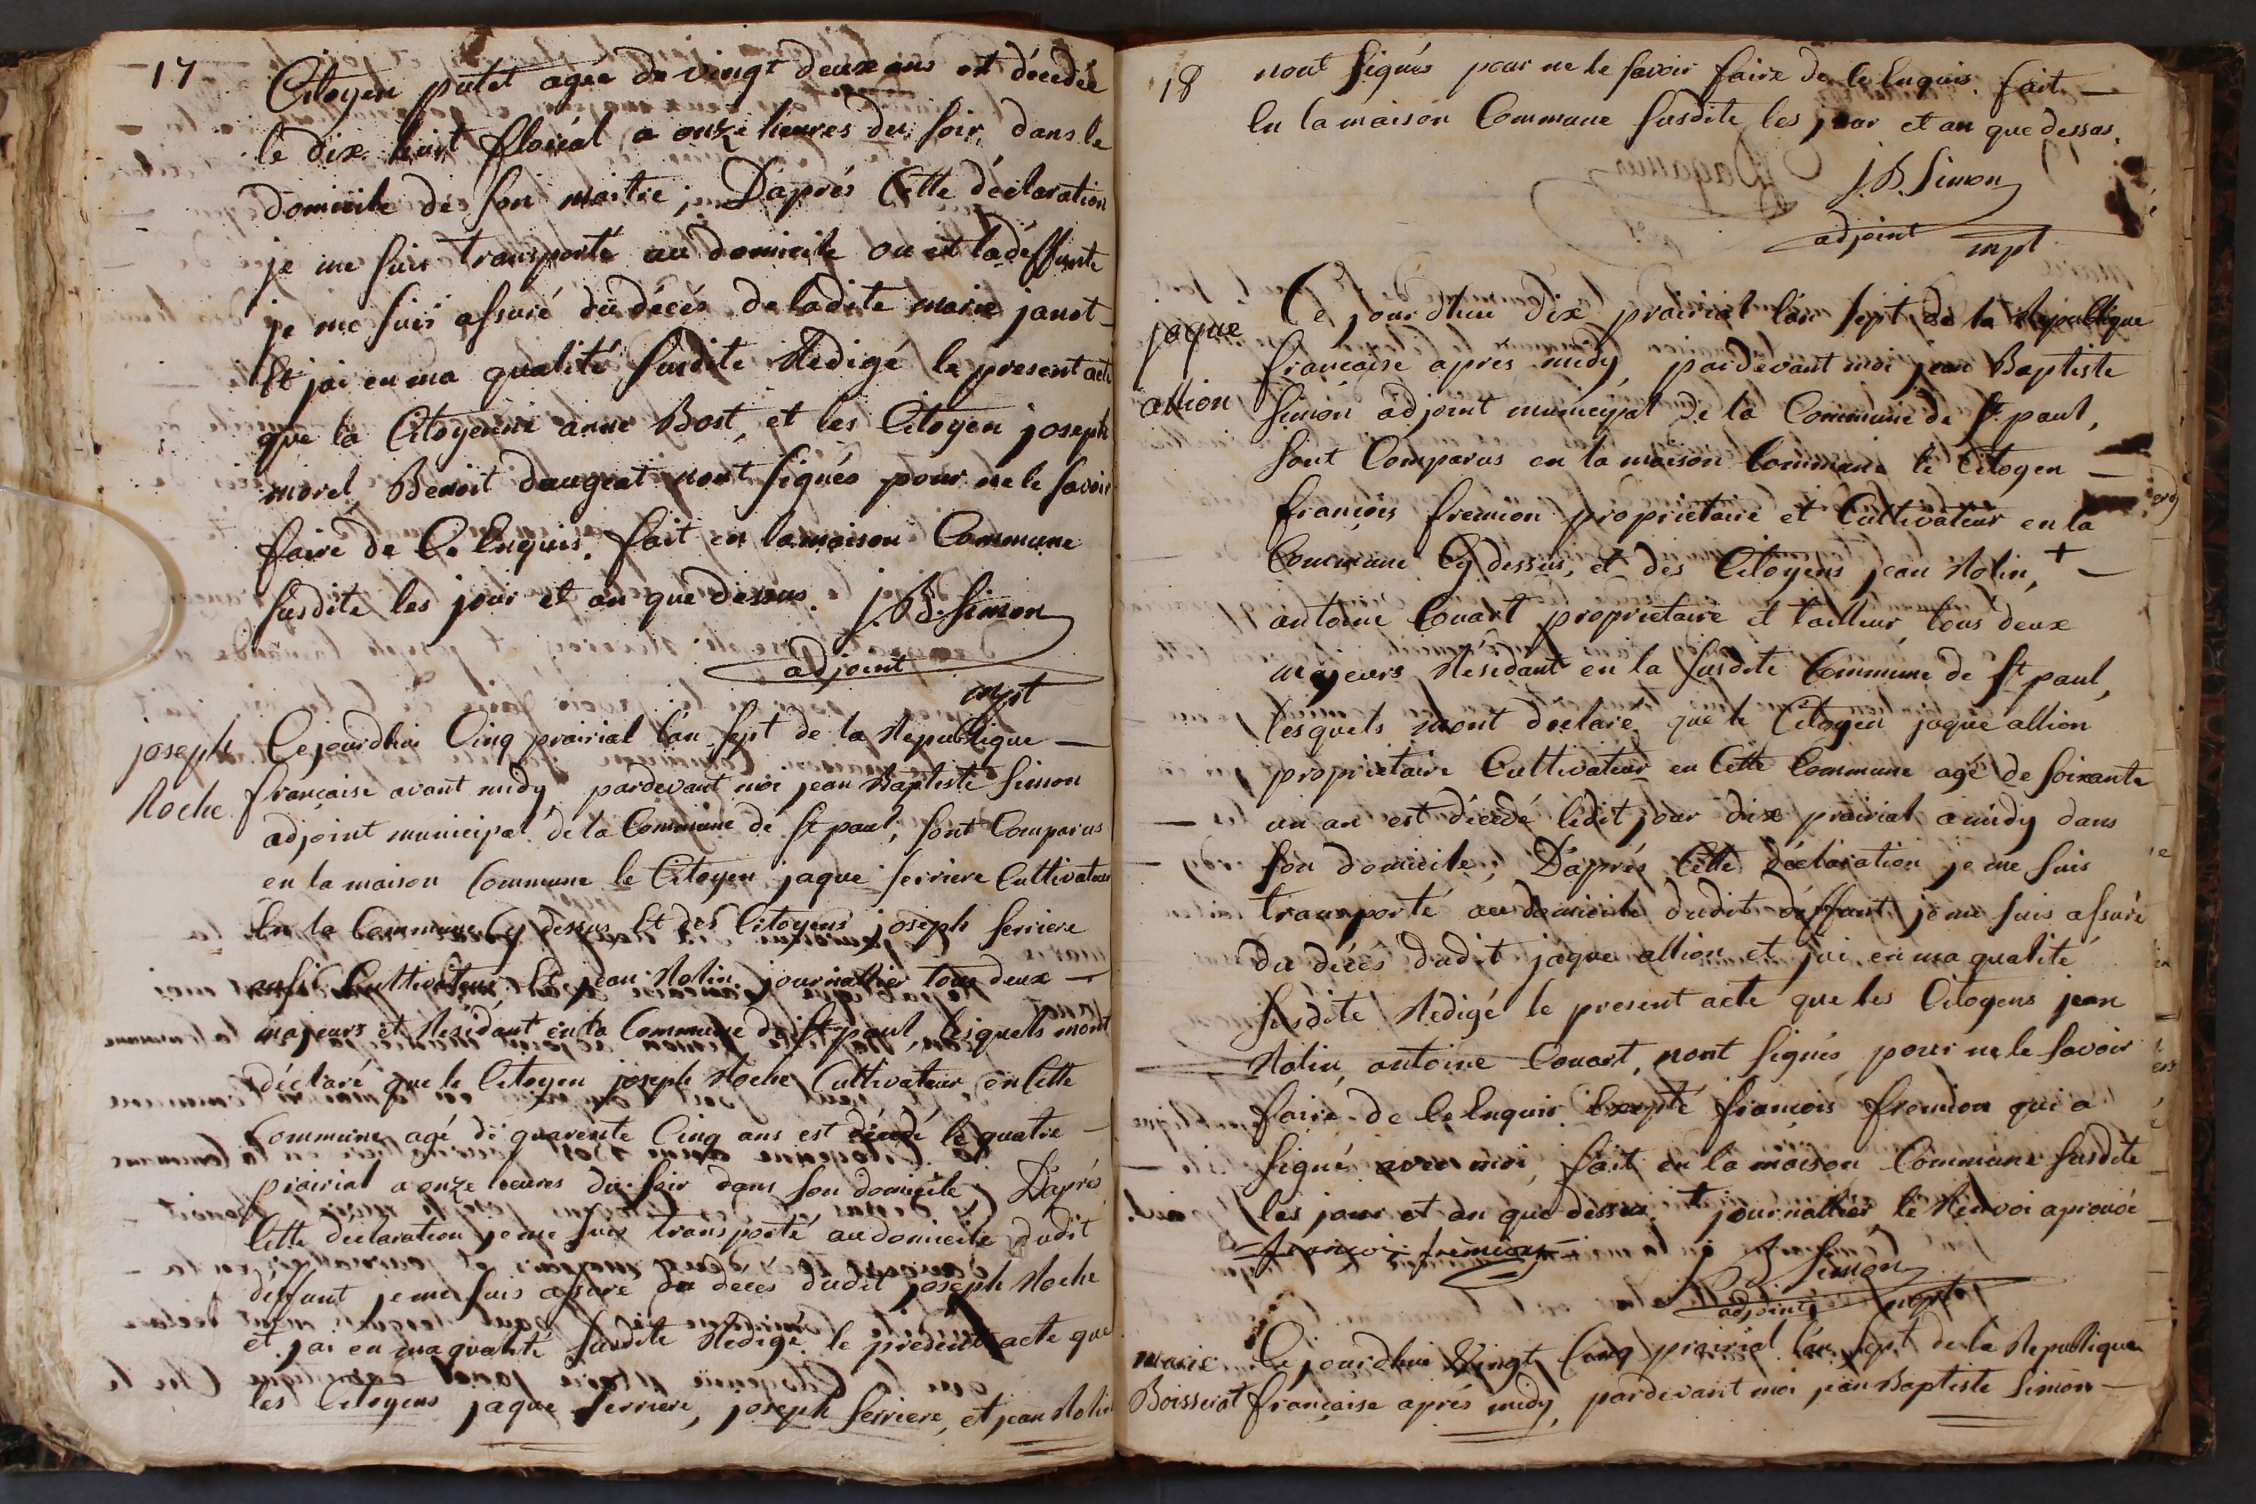 17
Citoyen putet agée de vingt deux ans est décedée
le dix huit floréal a onze heures du soir, dans le
domicile de son maitre; D'aprés Cette déclaration
je me suis transporté au domicile ou est la déffunte
je me suis assuré du décès de ladite marie janot
Et jai en ma qualité susdite Redigé le present acte
que la Citoyenne anne Bost, et les Citoyen joseph
morel, Benoit daugeat nont signés pour ne le savoir
faire de Ce Enquis. fait en la maison Commune
susdite les jour et an que dessus. J. B. Simon
adjoint
mpl
joseph
Roche
Cejourdhui Cinq prairial l'an sept de la Republique
francaise avant midy pardevant moi jean Baptiste Simon
adjoint municipal de la Commune de St paul, sont Comparus
en la maison Commune le Citoyen jaque ferriere Cultivateur
En la Commune Cy dessus Et des Citoyens joseph ferriere
aussi Cultivateur Et jean Rolin journallier tous deux
majeurs et Residant en la Commune de St paul, lesquels mont
déclaré que le Citoyen joseph Roche Cultivateur en Cette
Commune agé de quarente Cinq ans est décedé le quatre
prairial a onze heures du soir dans son domicile, D'aprés
Cette declaration je me suis transporté au domicile dudit
deffunt je me suis assuré du deces dudit joseph Roche
et jai en ma qualité susdite Redigé le present acte que
les Citoyens jaque ferriere, joseph ferriere, et jean Rolin
18
nont signés pour ne le savoir faire de Ce Enquis. fait
En la maison Commune susdite les jour et an que dessus.
J. B. Simon
adjoint mpl
jaque
allion
Ce jourdhui dix prairial l'an sept de la Republique
francaise apres midy, pardevant moi jean Baptiste
Simon adjoint municipal de la Commune de St paul,
sont Comparus en la maison Commune le Citoyen
françois fremion proprietaire et Cultivateur en la
Commune Cy dessus, et des Citoyens jean Rolin, +
antoine Couart proprietaire et tailleur, tous deux
majeurs Residant en la susdite Commune de St paul,
lesquels mont declaré que le Citoyen jaque allion
proprietaire Cultivateur en Cette Commune agé de soixante
un an est décedé ledit jour dix prairial a midy dans
son domicile; D'aprés Cette déclaration je me suis
transporté au domicile dudit déffunt je me suis assuré
du décès dudit jaque allion et jai en ma qualité
susdite Redigé le present acte que les Citoyens jean
Rolin, antoine Couart, nont signés pour ne le savoir
faire de Ce Enquis Excepté francois fremion qui a
signé avec moi, fait en la maison Commune susdite
les jour et an que dessus. + journallier le Renvoi aprouvé
françois fremion
J. B. Simon
adjoint mpl
marie
Boisserat
Ce jourdhui Vingt Cinq prairial l'an sept de la Republique
française aprés midy, pardevant moi jean Baptiste Simon